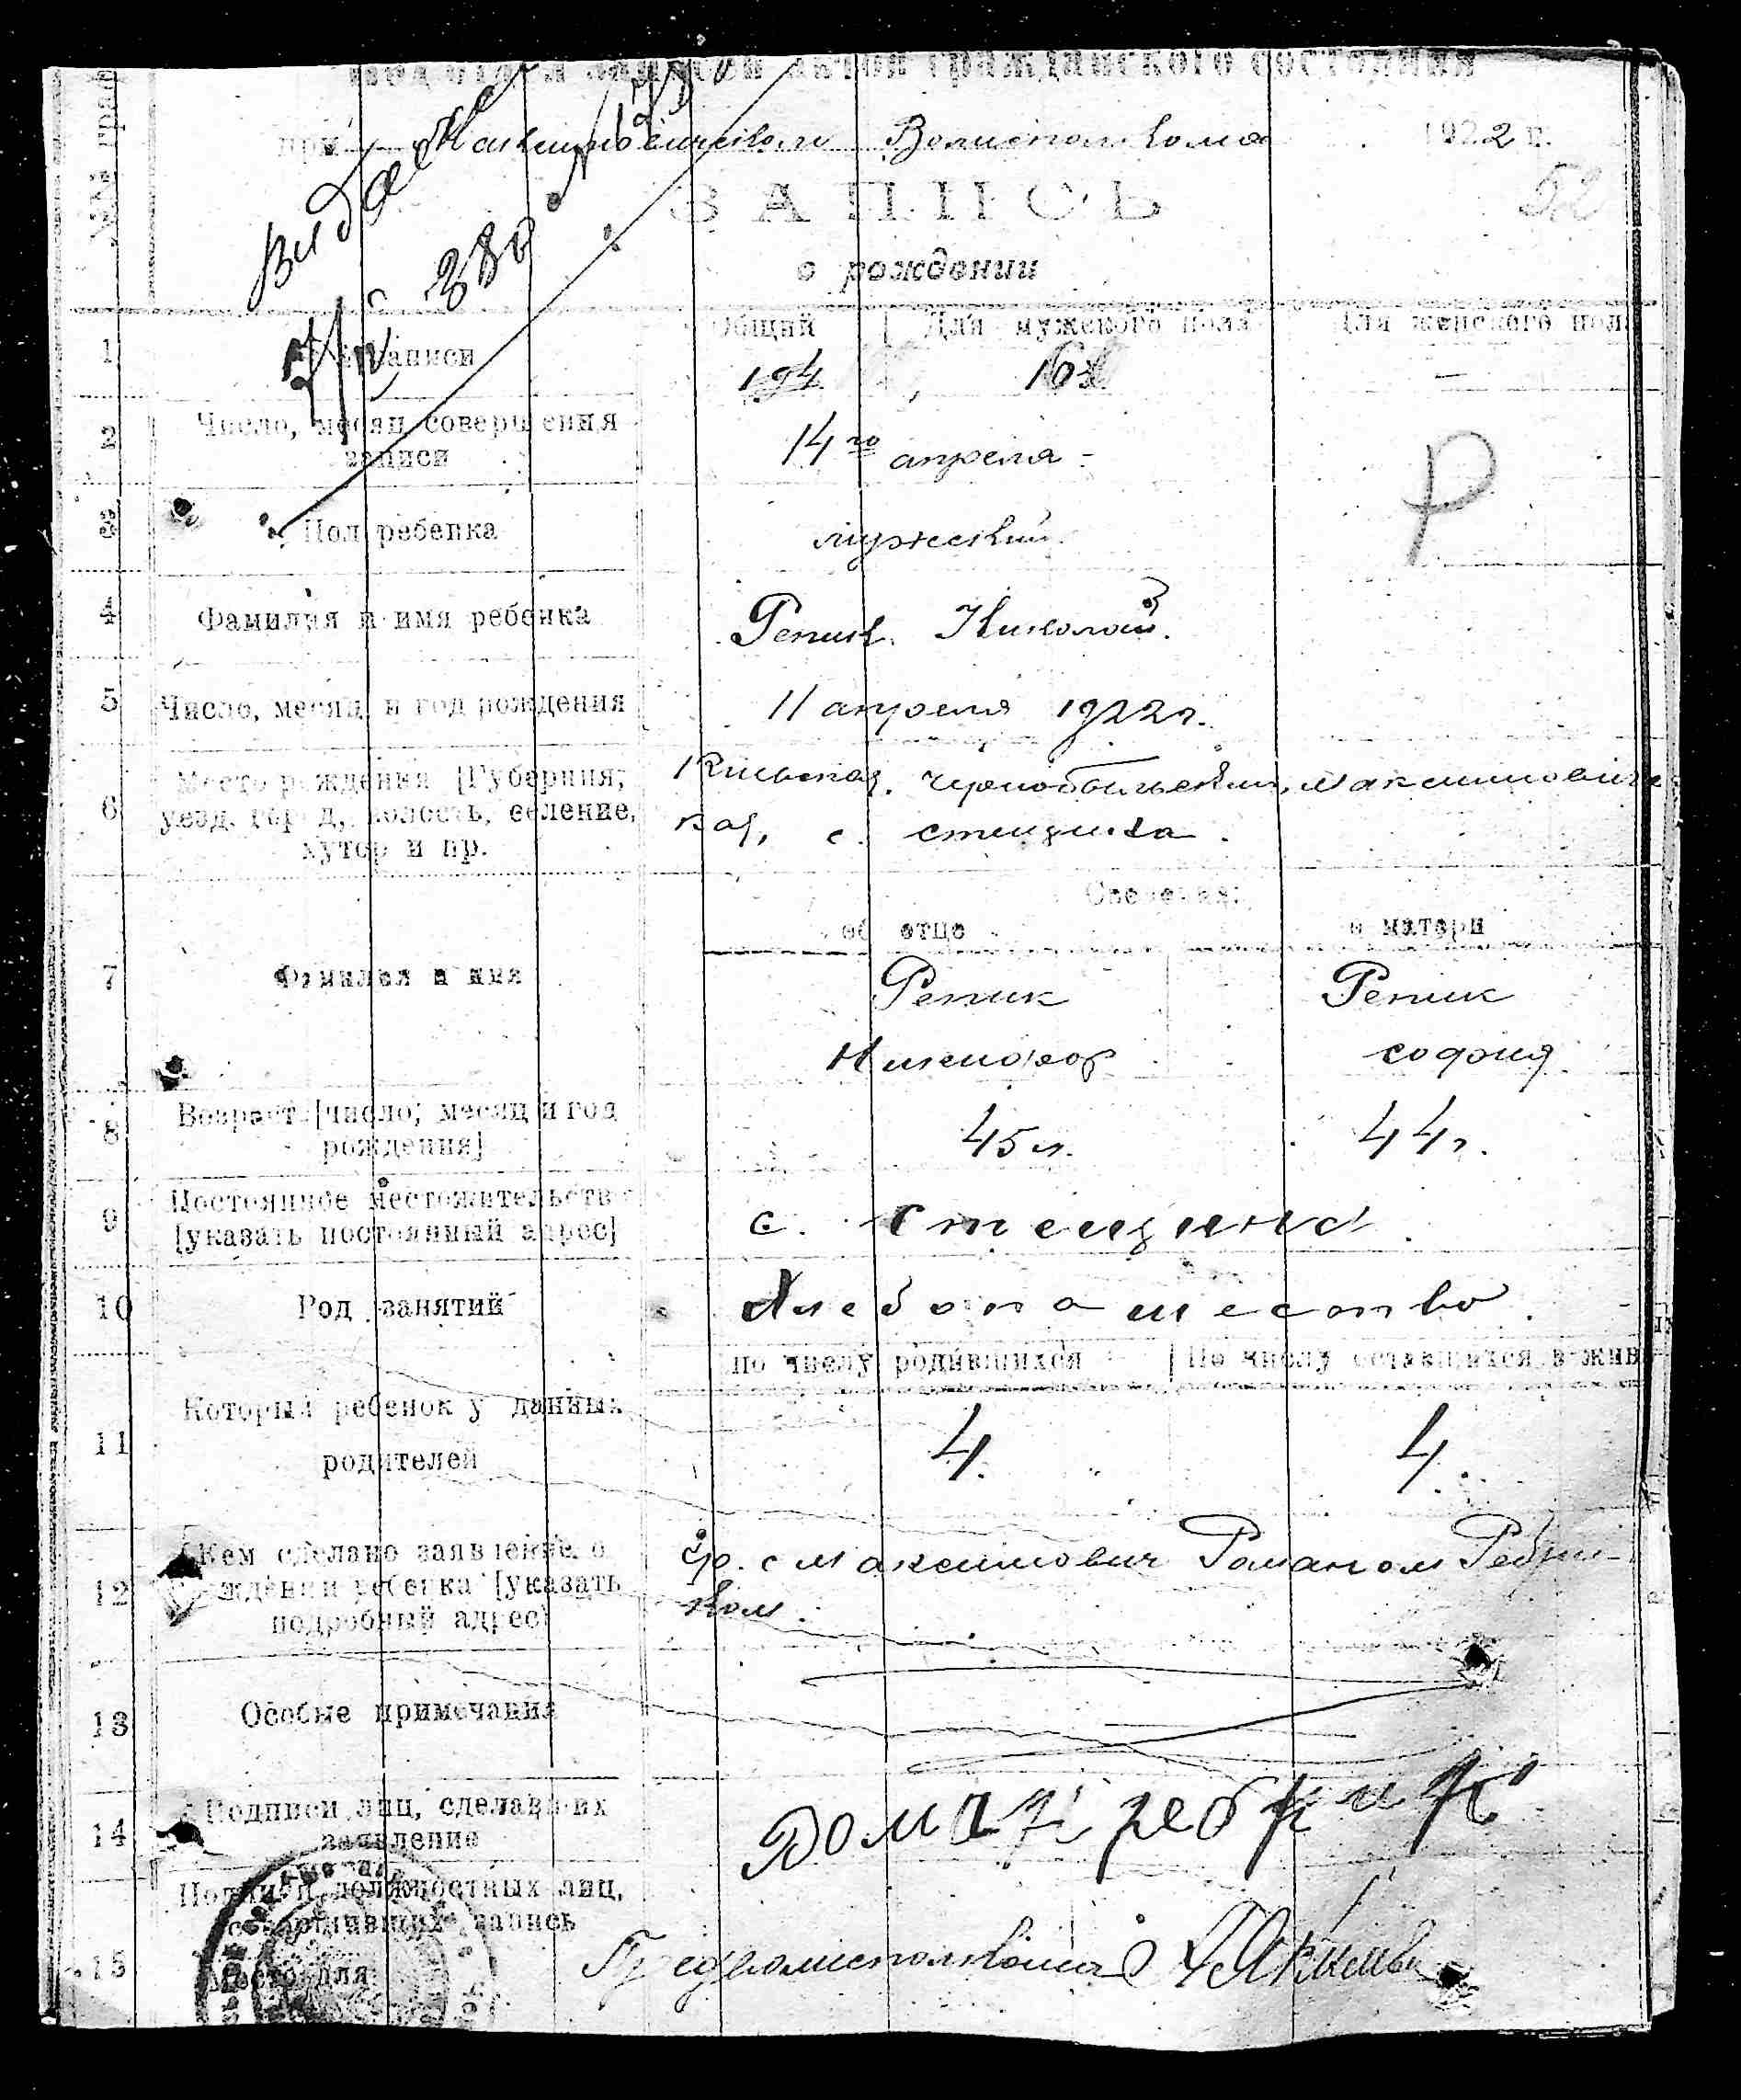 подотдел записей актов гражданского состояния
при Максимовичском Волисполкома 1922 г.
ЗАПИСЬ
52
о рождении
Видано
№№ граф
Общий Для мужского пола Для женского пола
1 № записи 194 —
2 Число, месяц совершения
записи
14го апреля
Р
3 Пол ребенка мужеский
4 Фамилия и имя ребенка Репик Николай
5 Число, месяц и год рождения 11 апреля 1922 г.
6 Место рождения [Губерния,
уезд, город, волость, селение,
хутор и пр.
Киевская, Чернобыльский, Максимович
вол, с. стещина.
Сведения:
об отце о матери
7 Фамилия и имя Репик Репик
Никифор София
8 Возраст [число, месяц и год
рождения]
45 л. 44 г.
9 Постоянное местожительство
[указать постоянный адрес]
с. Стещина.
10 Род занятий Хлебопашество.
по числу родившихся По числу оставшихся в жив
11 Который ребенок у данных
родителей
4. 4.
12 Кем сделано заявление о
рождении ребенка [указать
подробный адрес]
гр. с Максимович Романом Ребри-
ком.
13 Особые примечания
14 Подписи лиц, сделавших
заявление
15 Подписи должностных лиц,
совершивших запись
Место для
Предволисполкома